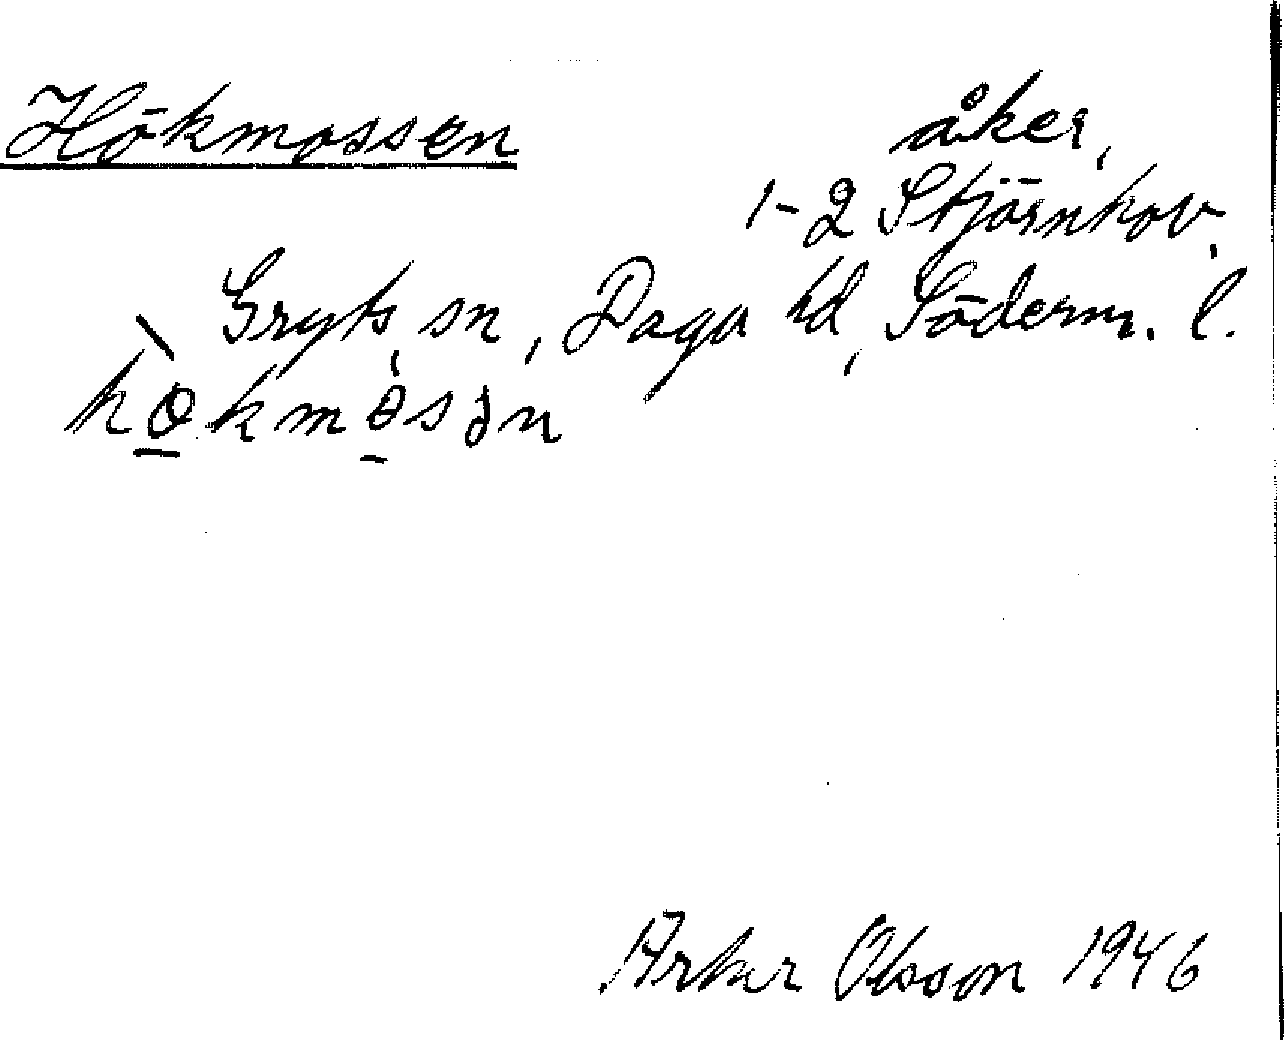 Hökmossen
åker,
1-2 Stjärnhov,
Gryts sn, Daga hd, Söderm. l.
Artur Olsson 1946